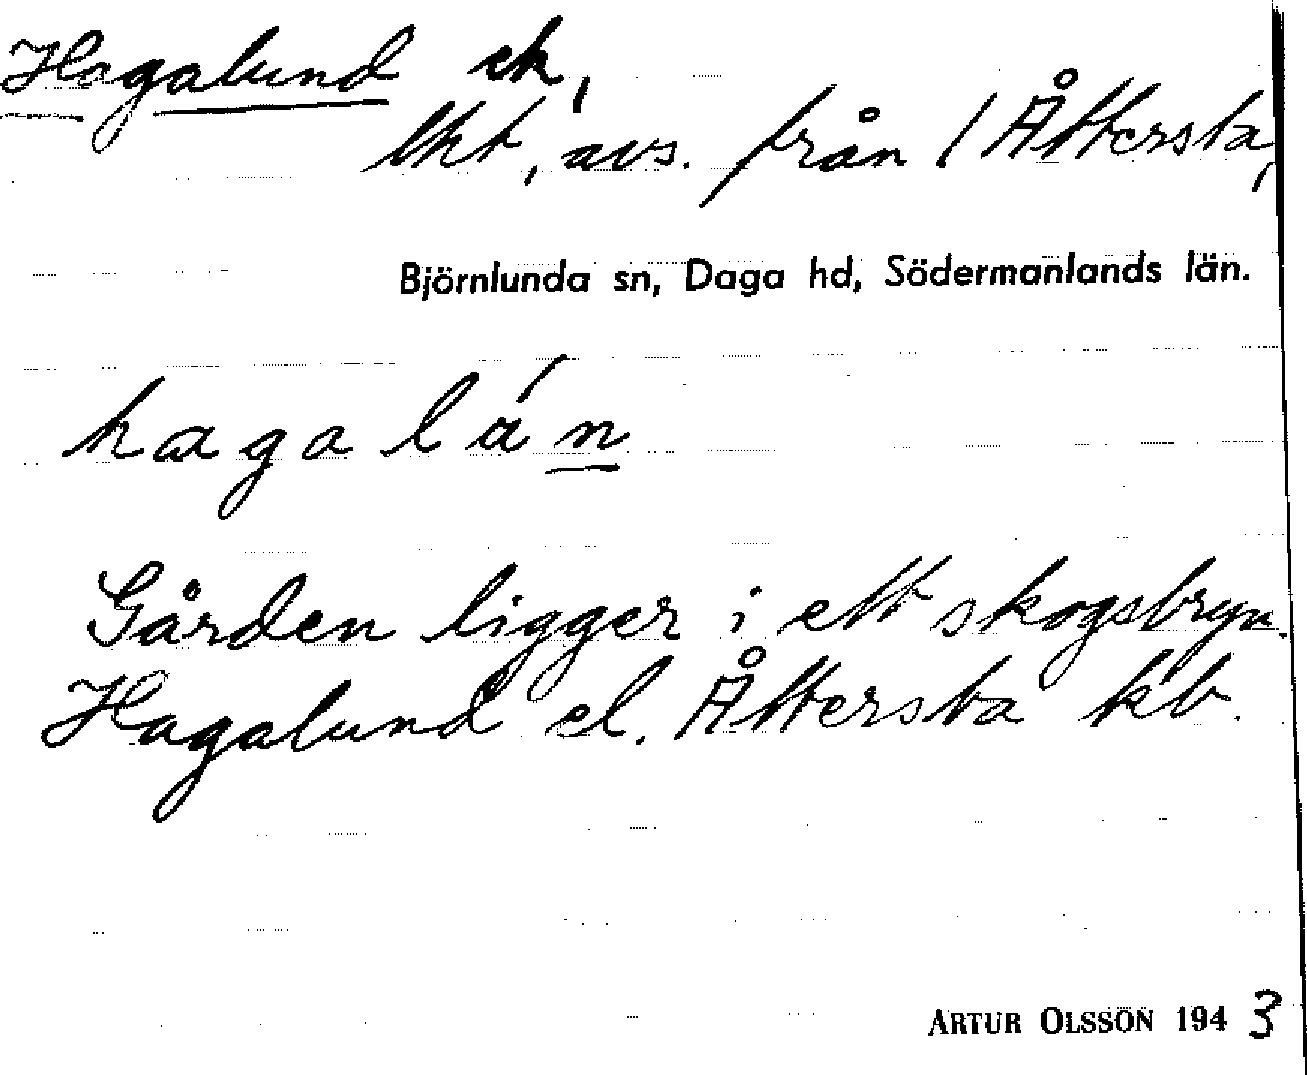 Hagalund ek,
lht, avs. från 1 Åttersta,
Björnlunda sn, Daga hd, Södermanlands län.
hagalán
Gården ligger i ett skogsbryn.
Hagalund el. Åttersta kb.
ARTUR OLSSON 1943